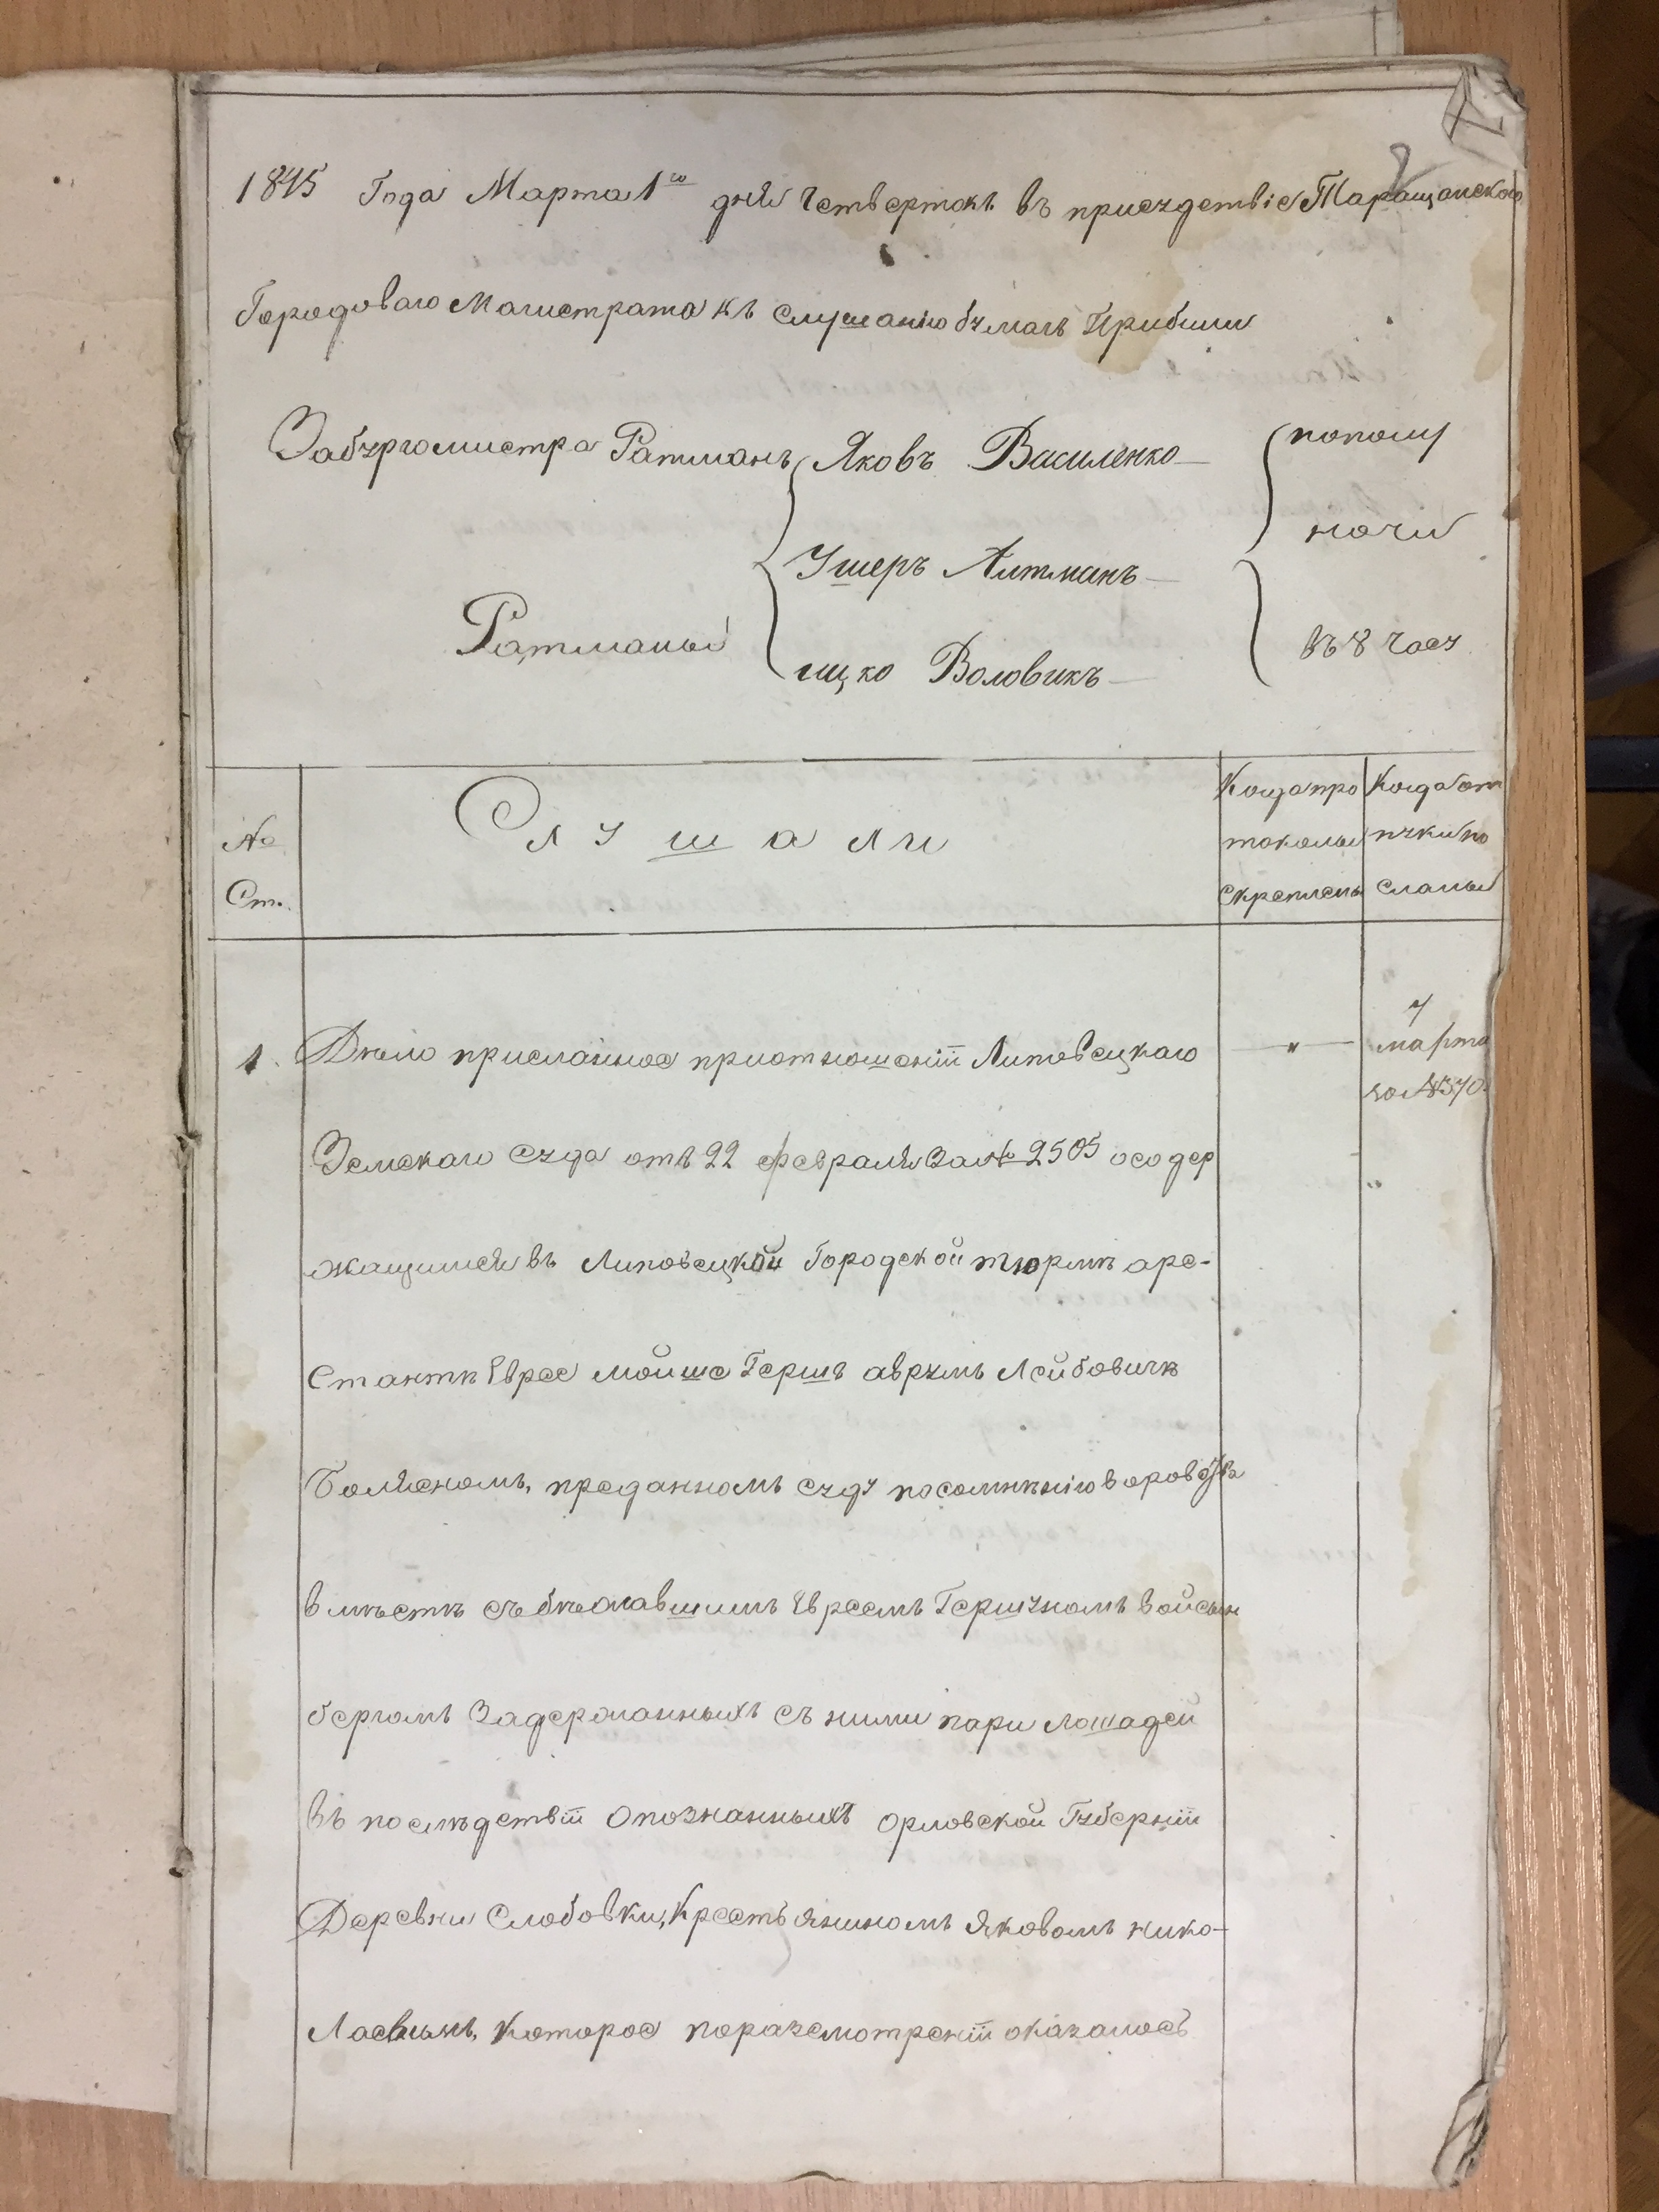 1845 Года Марта 1го дня Четвертокъ въ присудствіе Таращанского
Городоваго Магистрата къ слушанію бумагъ прибыли
Забургомистра Ратманъ Яковъ Василенко
Ушеръ Алтманъ
Ратманы
ицко Воловикъ
пополу
ночи
въ 8 часу
№ Ст.
Слушали
Когда про
токолы
скреплены
Когда от
пуски по
сланы
1. Дѣло присланное приотношеніи Липовецкаго
7 марта
за №370.
Земскаго Суда отъ 22 февраля за № 2505 осодер
жащимся въ Липовецкой Городской тюрмѣ аре-
стантѣ Еврее мойше Гершъ аврумъ Лейбовичѣ
Болясномъ, преданномъ суду посомнѣнію воровствѣ
вмѣстѣ съ бѣжавшимъ Евреемъ Гершуномъ войсын
бергомъ Задержанныхъ съ ними пари лошадей
въ послѣдствіи опознанныхъ Орловской Губерніи
Деревни Слободки, Крестьяниномъ Яковомъ нико-
лаевымъ, которое поразсмотреніи оказалось